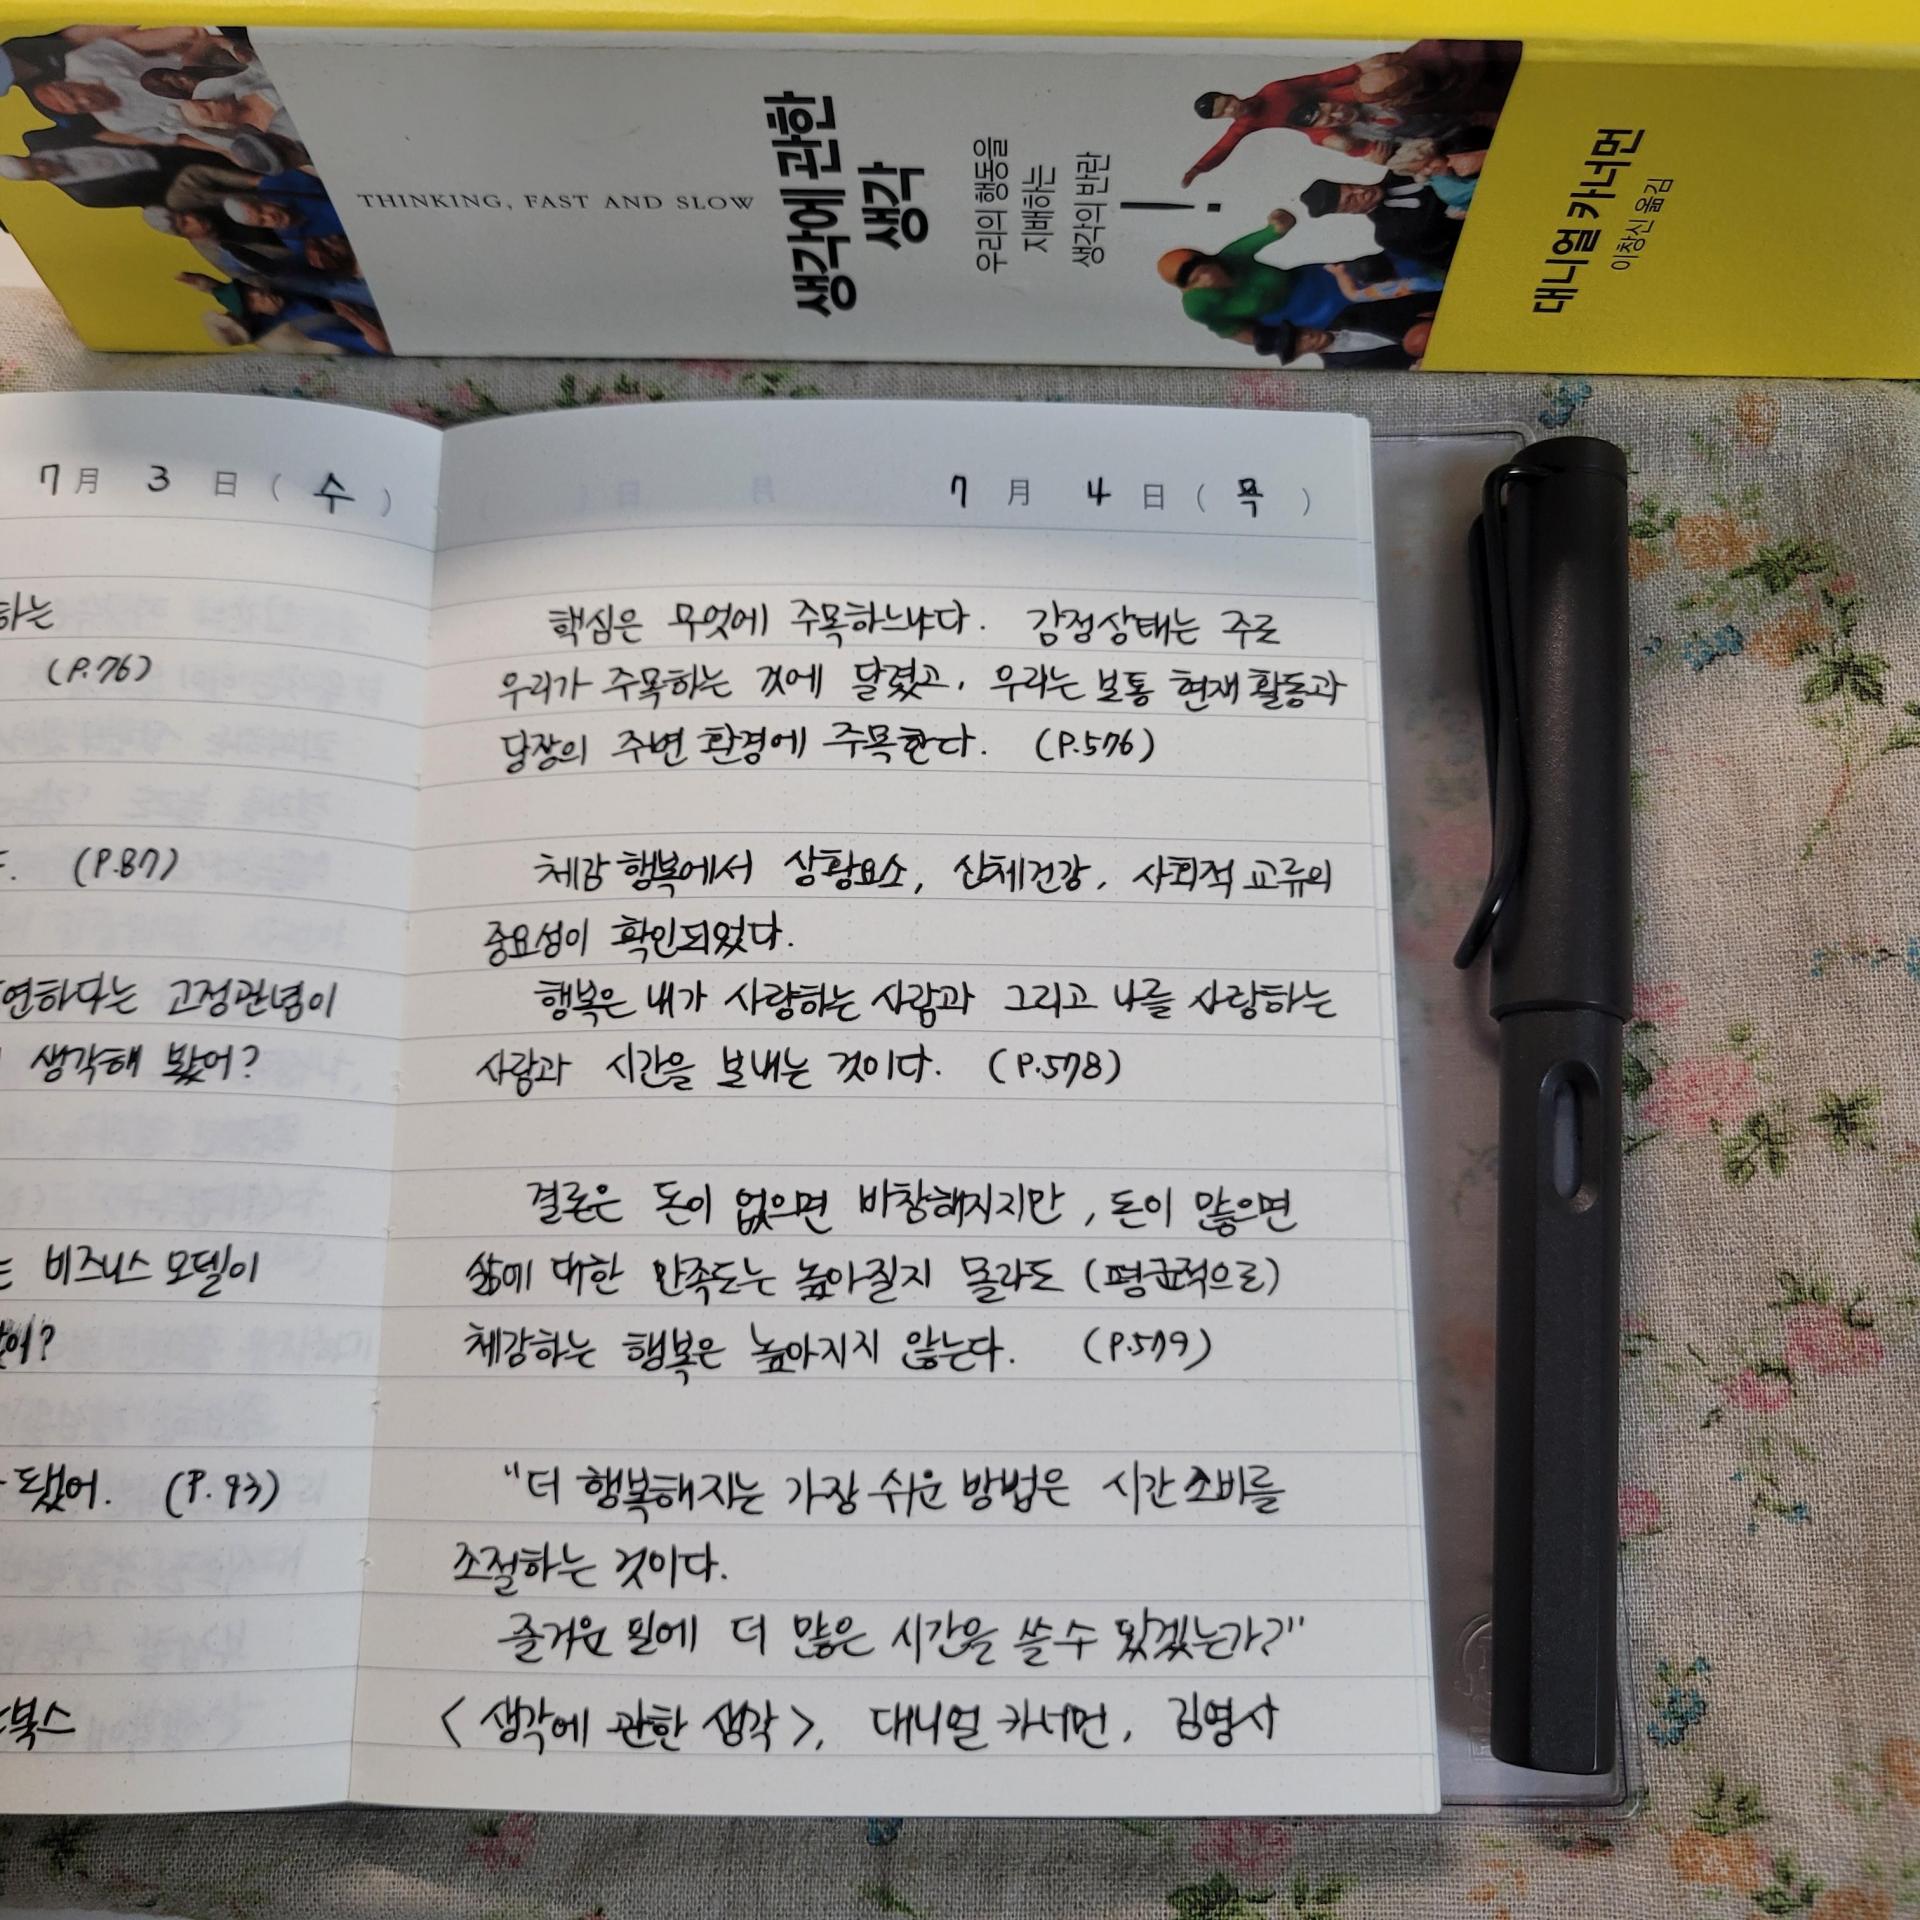 THINKING, FAST AND SLOW
생각에 관한
생각
우리의 행동을
지배하는
생각의 반란
!
대니얼 카너먼
이창신 옮김
7月 3 日 ( 수 )
하는
(P.76)
(P.87)
연하다는 고정관념이
생각해 봤어?
비즈니스 모델이
됐어. (P.93)
북스
7 月 4 日 ( 목 )
핵심은 무엇에 주목하느냐다. 감정상태는 주로
우리가 주목하는 것에 달렸고, 우리는 보통 현재 활동과
당장의 주변 환경에 주목한다. (P.576)
체감 행복에서 상황요소, 신체건강, 사회적 교류의
중요성이 확인되었다.
행복은 내가 사랑하는 사람과 그리고 나를 사랑하는
사람과 시간을 보내는 것이다. (P.578)
결론은 돈이 없으면 비참해지지만, 돈이 많으면
삶에 대한 만족도는 높아질지 몰라도 (평균적으로)
체감하는 행복은 높아지지 않는다. (P.579)
"더 행복해지는 가장 쉬운 방법은 시간 소비를
조절하는 것이다.
즐거운 일에 더 많은 시간을 쓸 수 있겠는가?"
< 생각에 관한 생각 >, 대니얼 카너먼, 김영사